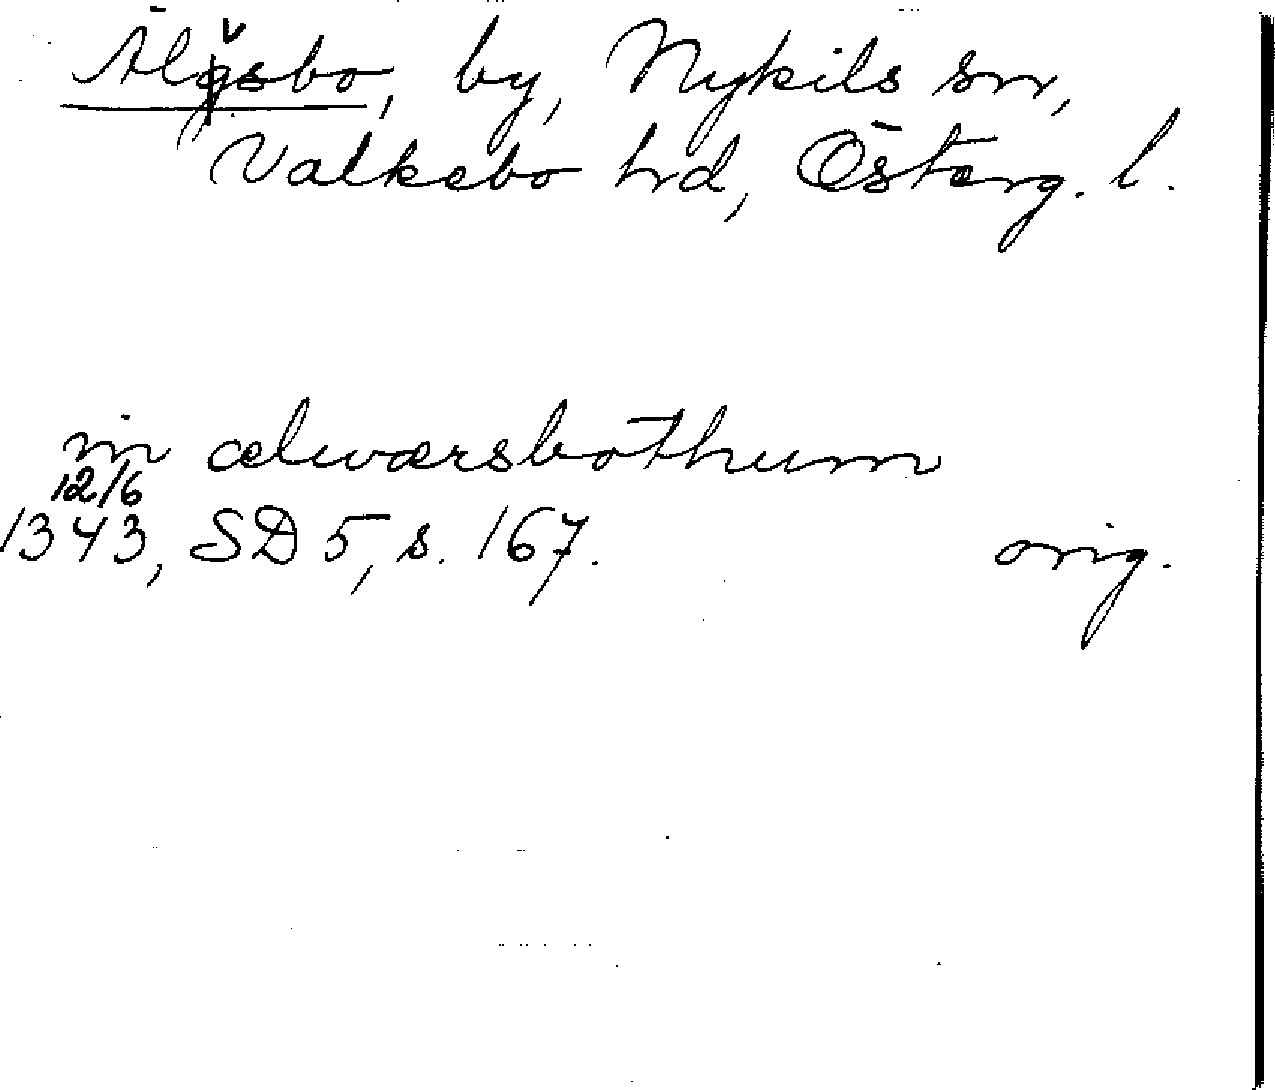 Älvsbo, by, Nykils sn,
Valkebo hrd, Österg. l.
in æluærsbothum
12/6
1343, SD 5, s. 167. orig.